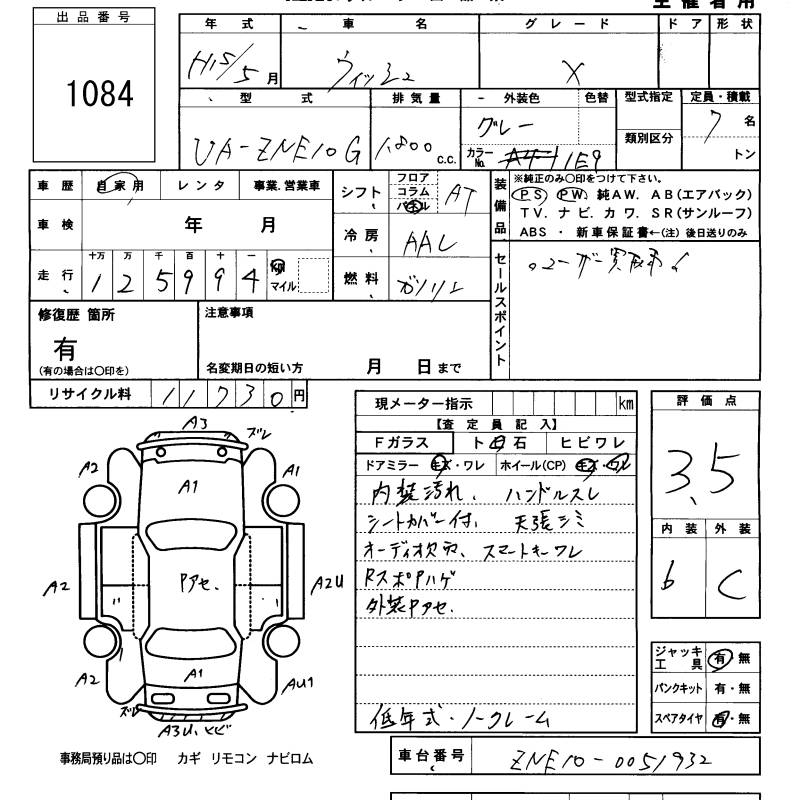 主催者用
出品番号
1084
年式 車名 グレード ドア 形状
H15/5月 ウィッシュ X
型式 排気量 外装色 色替 型式指定 定員・積載
UA-ZNE10G 1800 c.c. グレー カラーNo. 1E9 類別区分 7名
トン
車歴 自家用 レンタ 事業.営業車
シフト フロア コラム パネル AT
装備品 ※純正のみ〇印をつけて下さい。
PS PW 純AW. AB(エアバック)
TV. ナビ. カワ. SR(サンルーフ)
ABS ・ 新車保証書←(注) 後日送りのみ
車検 年 月
冷房 AAC
走行 十万 万 千 百 十 一
125994 km マイル
燃料 ガソリン
セールスポイント
。ユーザー買取車!
修復歴 箇所
有
(有の場合は〇印を)
注意事項
名変期日の短い方 月 日まで
リサイクル料 11730円
現メーター指示 km
【査定員記入】
Fガラス ト白石 ヒビワレ
ドアミラー キズ・ワレ ホイール(CP) キズ・ワレ
内装汚れ、 ハンドルスレ
シートカバー付、 天張シミ
オーディオ次市、 スマートキーワレ
RスポPハゲ
外装Pアセ.
低年式・ノークレーム
評価点
3.5
内装 外装
b C
ジャッキ工具 有・無
パンクキット 有・無
スペアタイヤ 有・無
A3
ズレ
A2 A1
A1
A2 Pアセ. A2U
A2 A1 AU1
ズレ
A3U、ヒビ
事務局預り品は〇印 カギ リモコン ナビロム
車台番号 ZNE10-0051932